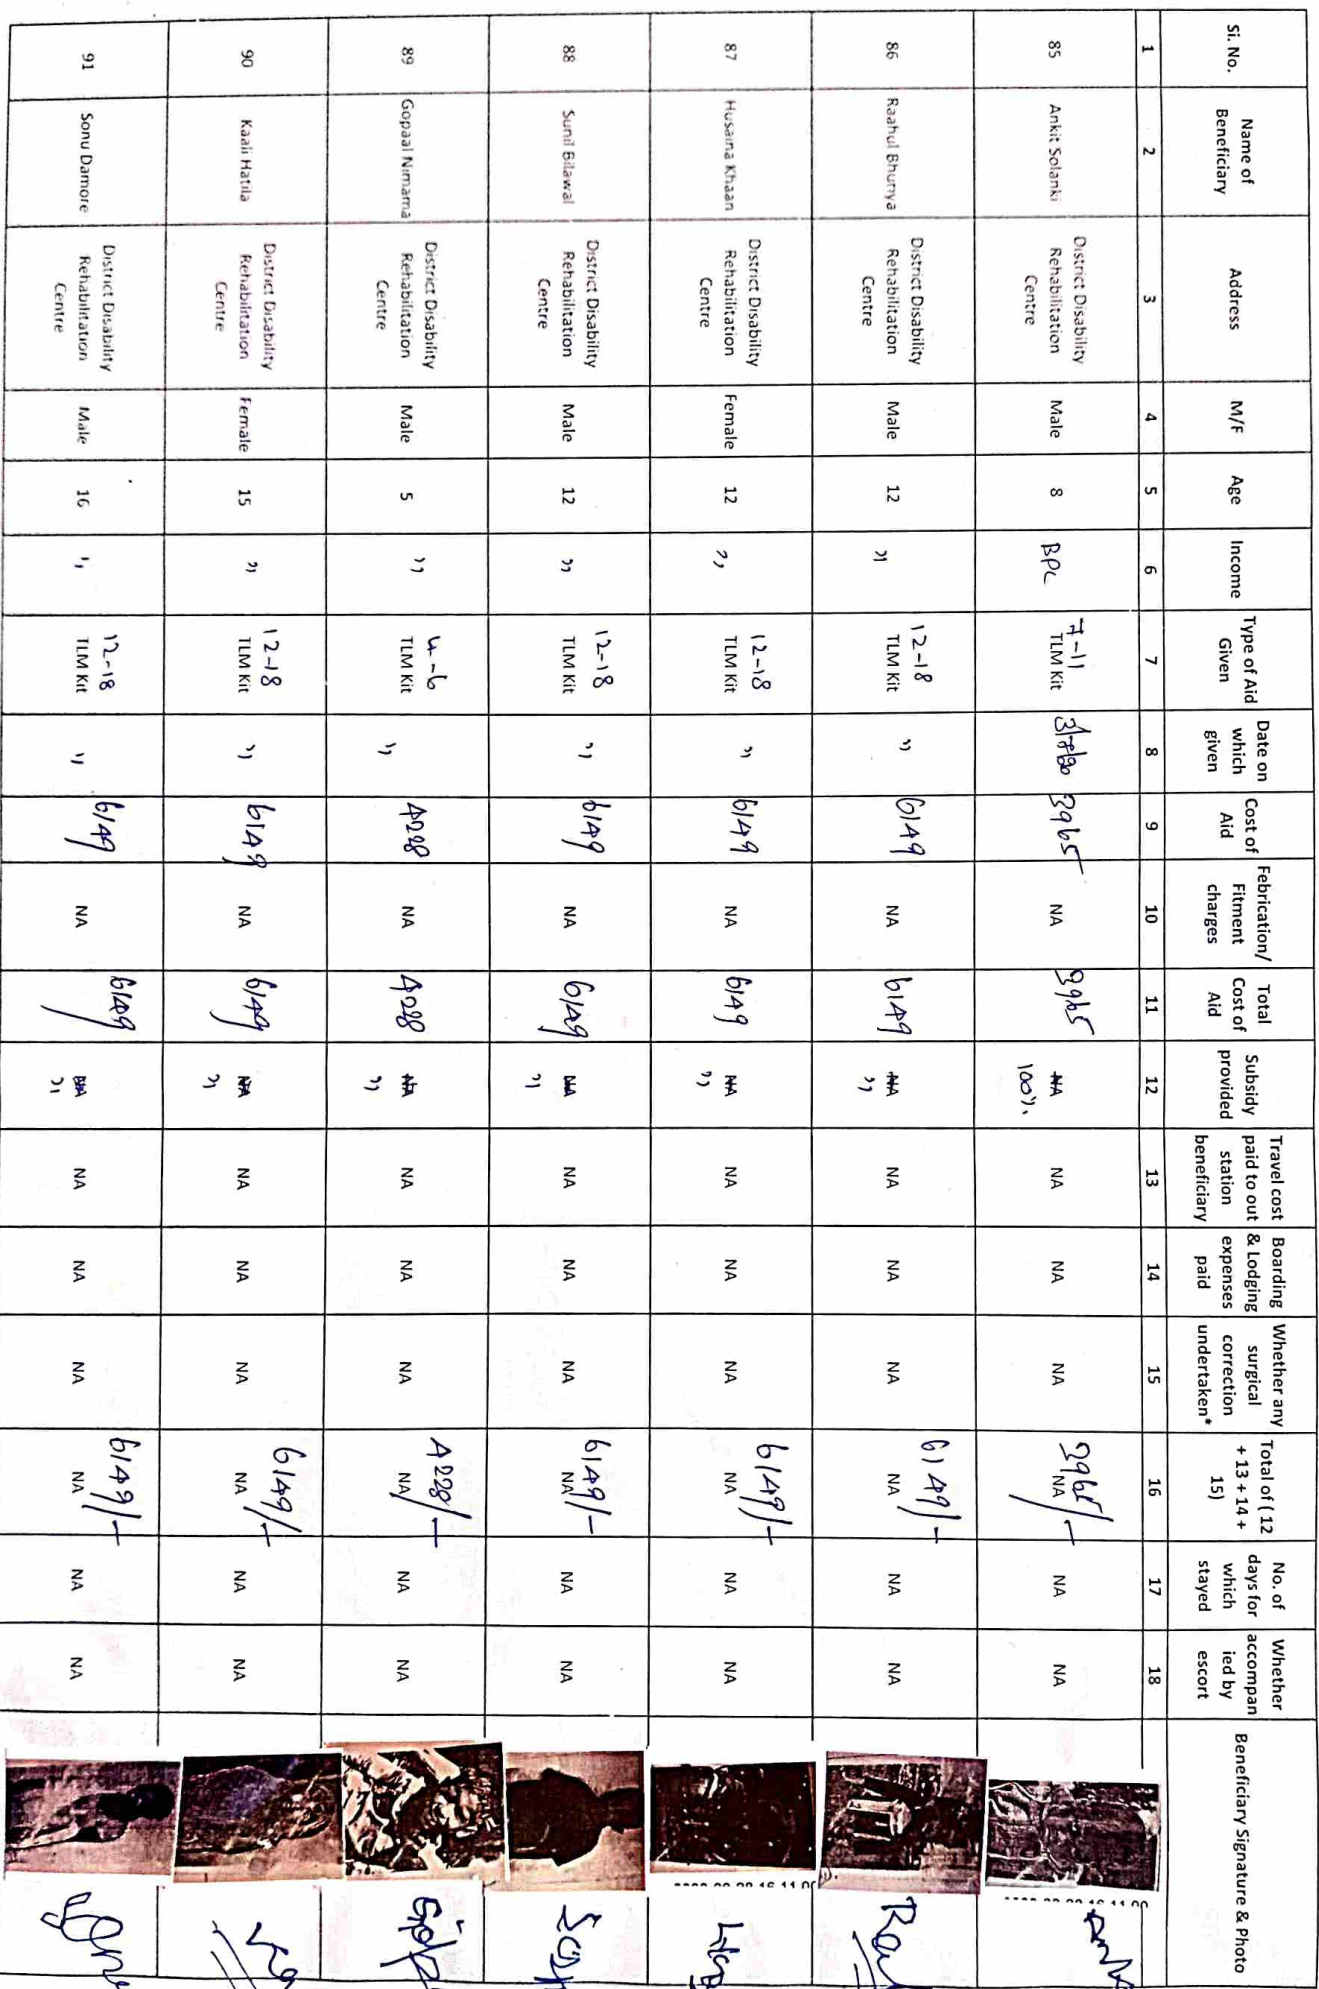 Si. No.
Name of
Beneficiary
Address
M/F
Age
Income
Type of Aid
Given
Date on
which
given
Cost of
Aid
Febrication/
Fitment
charges
Total
Cost of
Aid
Subsidy
provided
Travel cost
paid to out
station
beneficiary
Boarding
& Lodging
expenses
paid
Whether any
surgical
correction
undertaken*
Total of ( 12
+ 13 + 14 +
15)
No. of
days for
which
stayed
Whether
accompan
ied by
escort
Beneficiary Signature & Photo
1 2 3 4 5 6 7 8 9 10 11 12 13 14 15 16 17 18
85
Ankit Solanki
District Disability
Rehabilitation
Centre
Male
8
BPL
7-11
TLM Kit
3965
NA
3965
NA
100%
NA
NA
NA
3965/-
NA
NA
NA
86
Raahul Bhunya
District Disability
Rehabilitation
Centre
Male
12
"
12-18
TLM Kit
"
6149
NA
6149
NA
"
NA
NA
NA
6149/-
NA
NA
NA
87
Husaina Khaan
District Disability
Rehabilitation
Centre
Female
12
"
12-18
TLM Kit
"
6149
NA
6149
NA
"
NA
NA
NA
6149/-
NA
NA
NA
88
Sunil Bilawal
District Disability
Rehabilitation
Centre
Male
12
"
12-18
TLM Kit
"
6149
NA
6149
NA
"
NA
NA
NA
6149/-
NA
NA
NA
89
Gopaal Nimama
District Disability
Rehabilitation
Centre
Male
5
"
4-6
TLM Kit
"
4228
NA
4228
NA
"
NA
NA
NA
4228/-
NA
NA
NA
90
Kaali Hatila
District Disability
Rehabilitation
Centre
Female
15
"
12-18
TLM Kit
"
6149
NA
6149
NA
"
NA
NA
NA
6149/-
NA
NA
NA
91
Sonu Damore
District Disability
Rehabilitation
Centre
Male
16
"
12-18
TLM Kit
"
6149
NA
6149
NA
"
NA
NA
NA
6149/-
NA
NA
NA